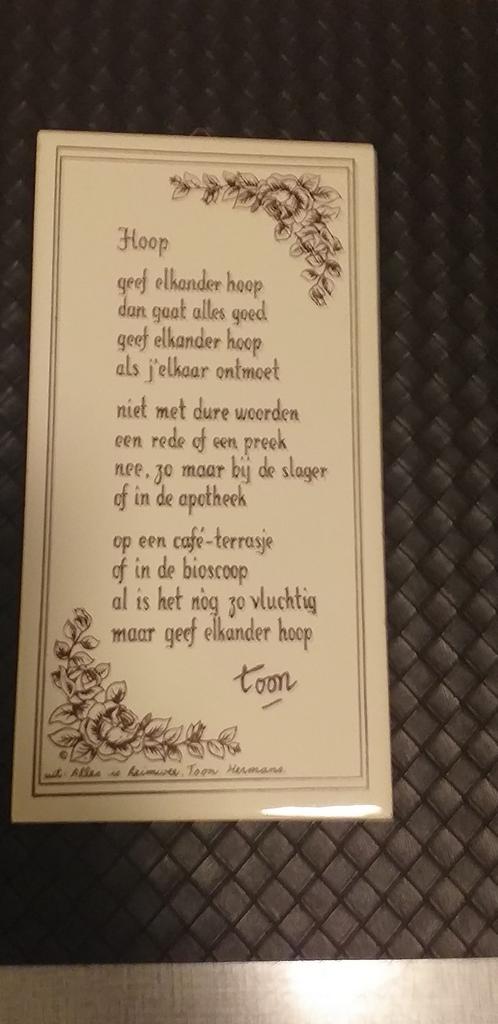 Hoop
geef elkander hoop
dan gaat alles goed
geef elkander hoop
als j'elkaar ontmoet
niet met dure woorden
een rede of een preek
nee, zo maar bij de slager
of in de apotheek
op een café-terrasje
of in de bioscoop
al is het nòg zo vluchtig
maar geef elkander hoop
toon
©
uit: Alles is Heimwee. Toon Hermans.